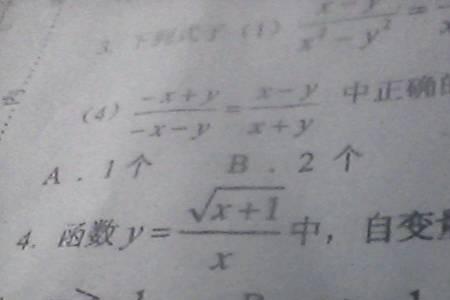 3. 下列式子 (1) \frac{x-y}{x^2-y^2}=
(4) \frac{-x+y}{-x-y}=\frac{x-y}{x+y} 中正确的
A . 1个 B . 2 个
4. 函数 y=\frac{\sqrt{x+1}}{x} 中，自变量